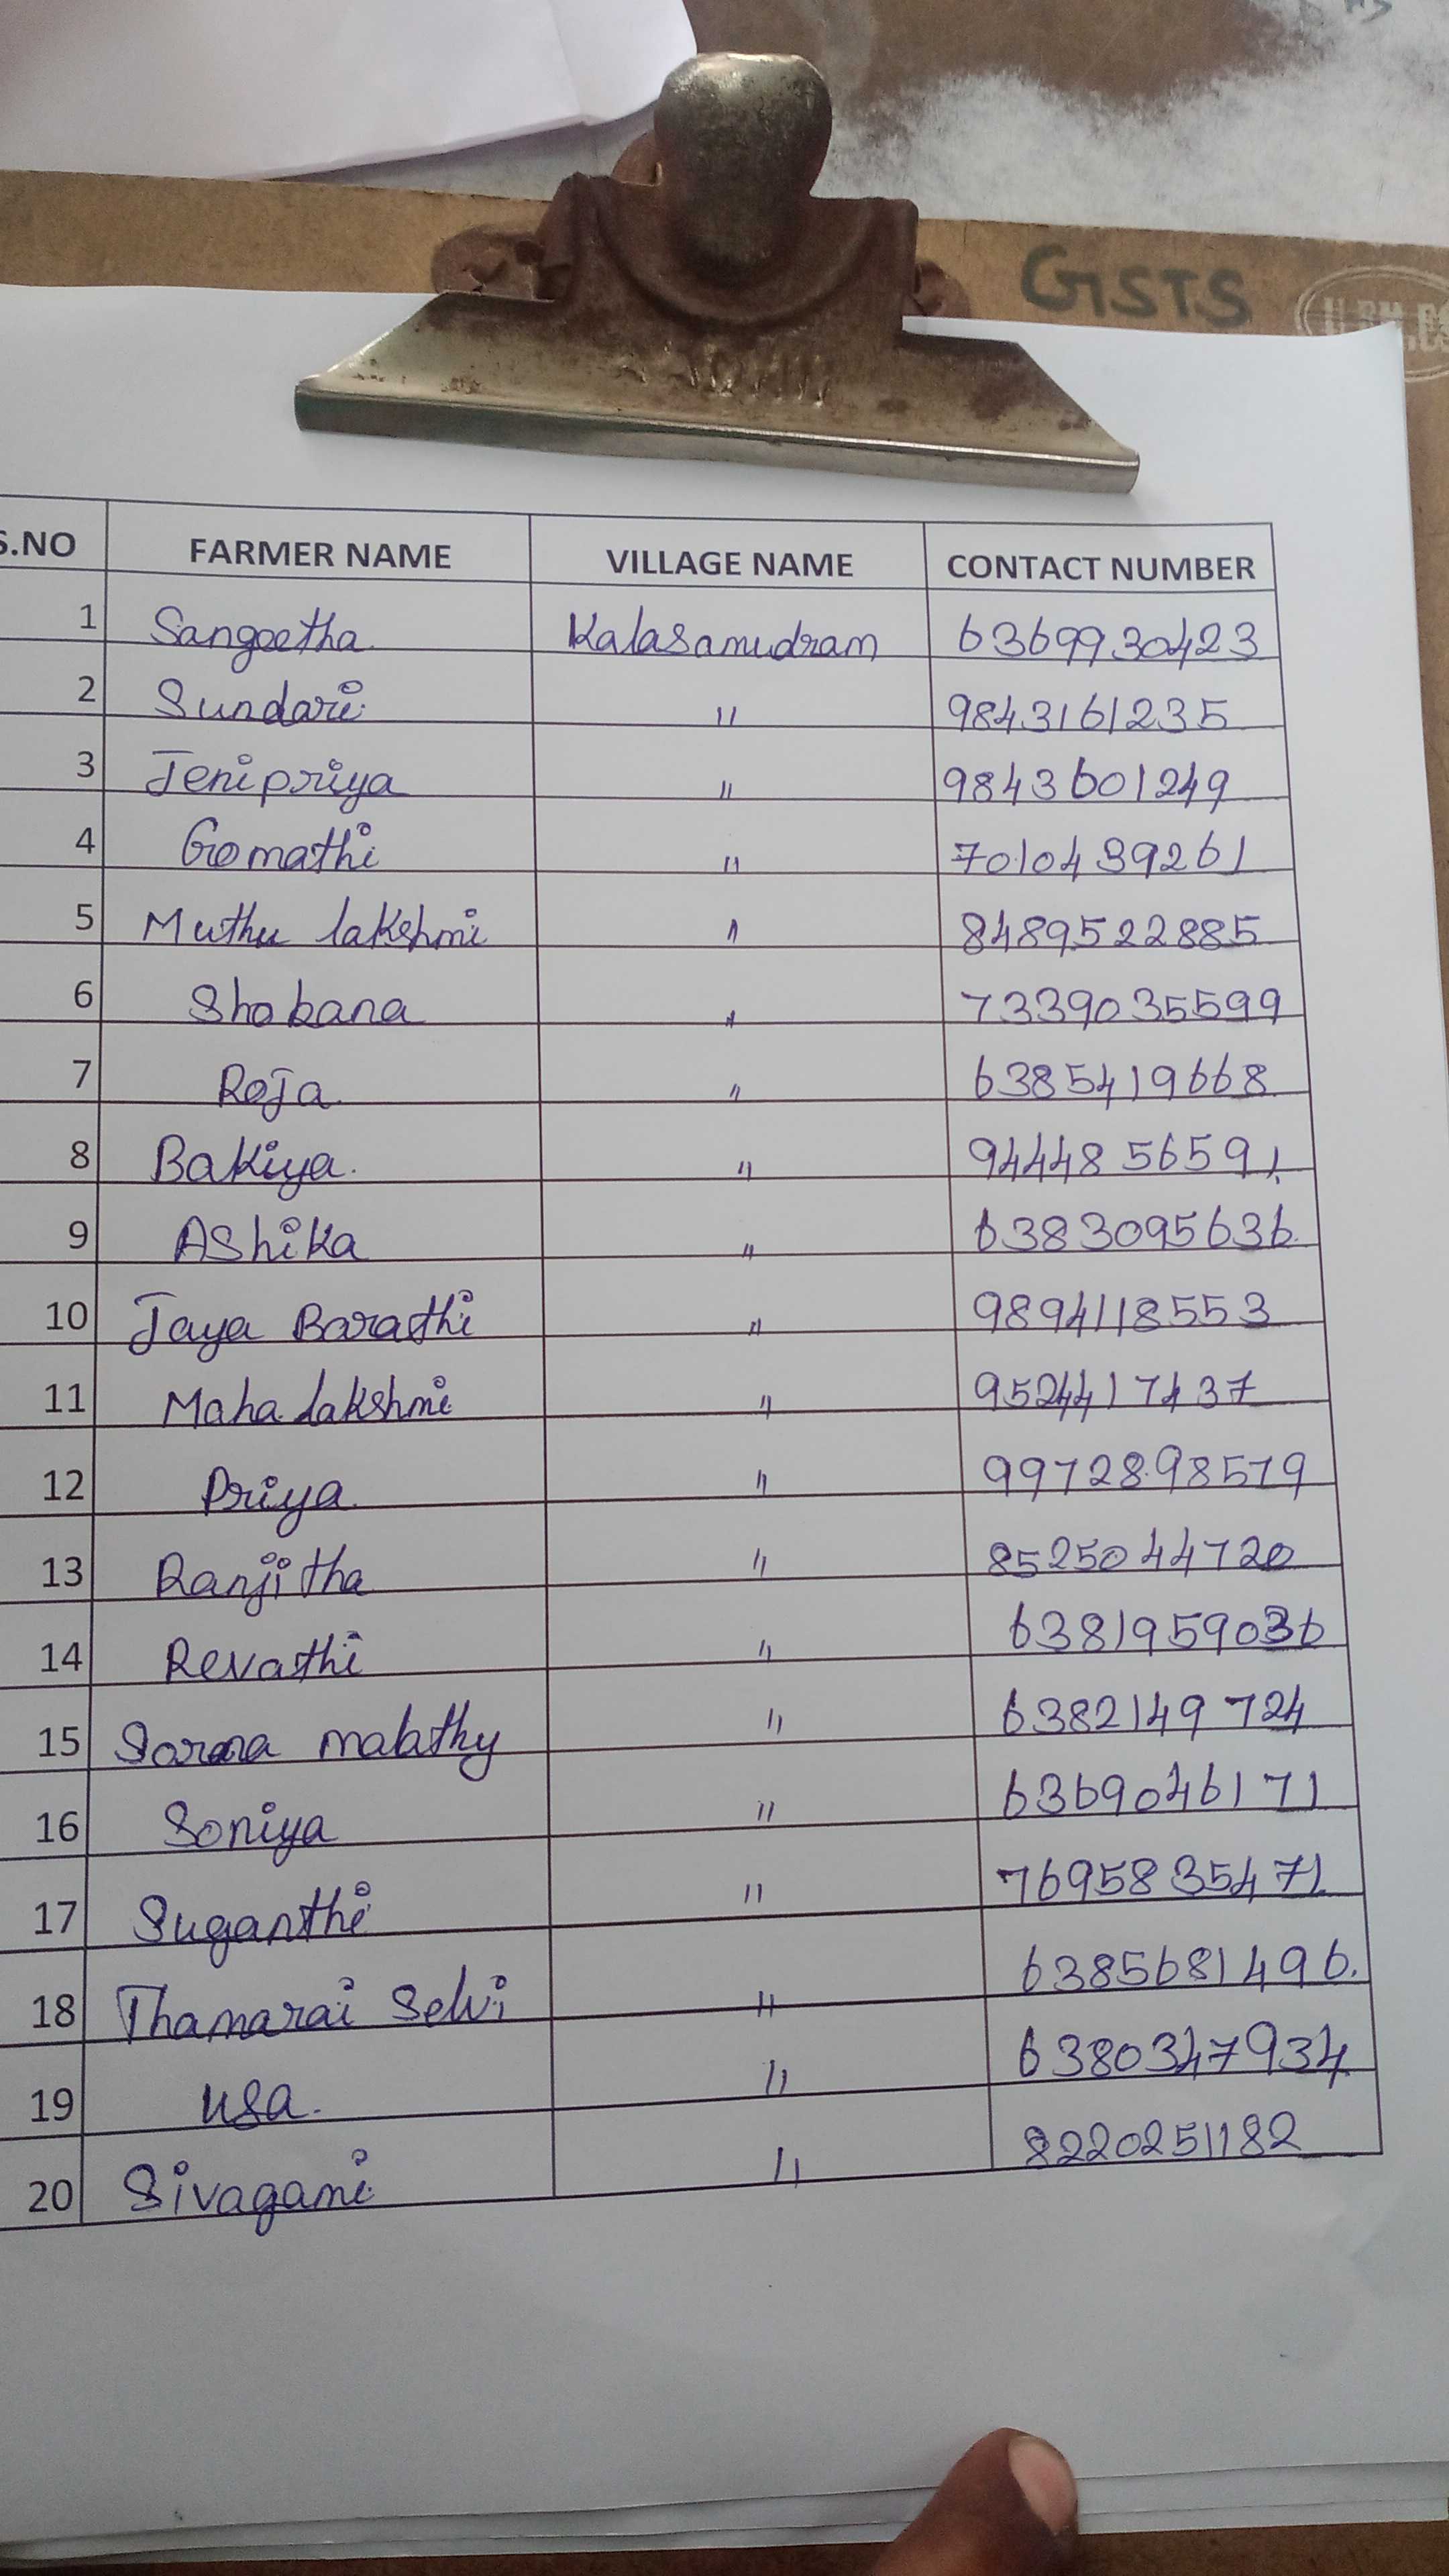 GSTS
S.NO FARMER NAME VILLAGE NAME CONTACT NUMBER
1 Sangeetha Kalasamudram 6369930423
2 Sundari " 9843161235
3 Jenipriya " 9843601249
4 Gomathi " 7010439261
5 Muthu lakshmi " 8489522885
6 Shobana " 7339035599
7 Roja " 6385419668
8 Bakiya. " 9444856591
9 Ashika " 6383095636
10 Jaya Barathi " 9894118553
11 Maha lakshmi " 9524417437
12 Priya " 9972898579
13 Ranjitha " 8525044720
14 Revathi " 6381959036
15 malathy " 6382149724
16 Soniya " 6369046171
17 Suganthi " 7695835471
18 Thamarai Selvi " 6385681496.
19 Usa. " 6380347934
20 Sivagami " 8220251182